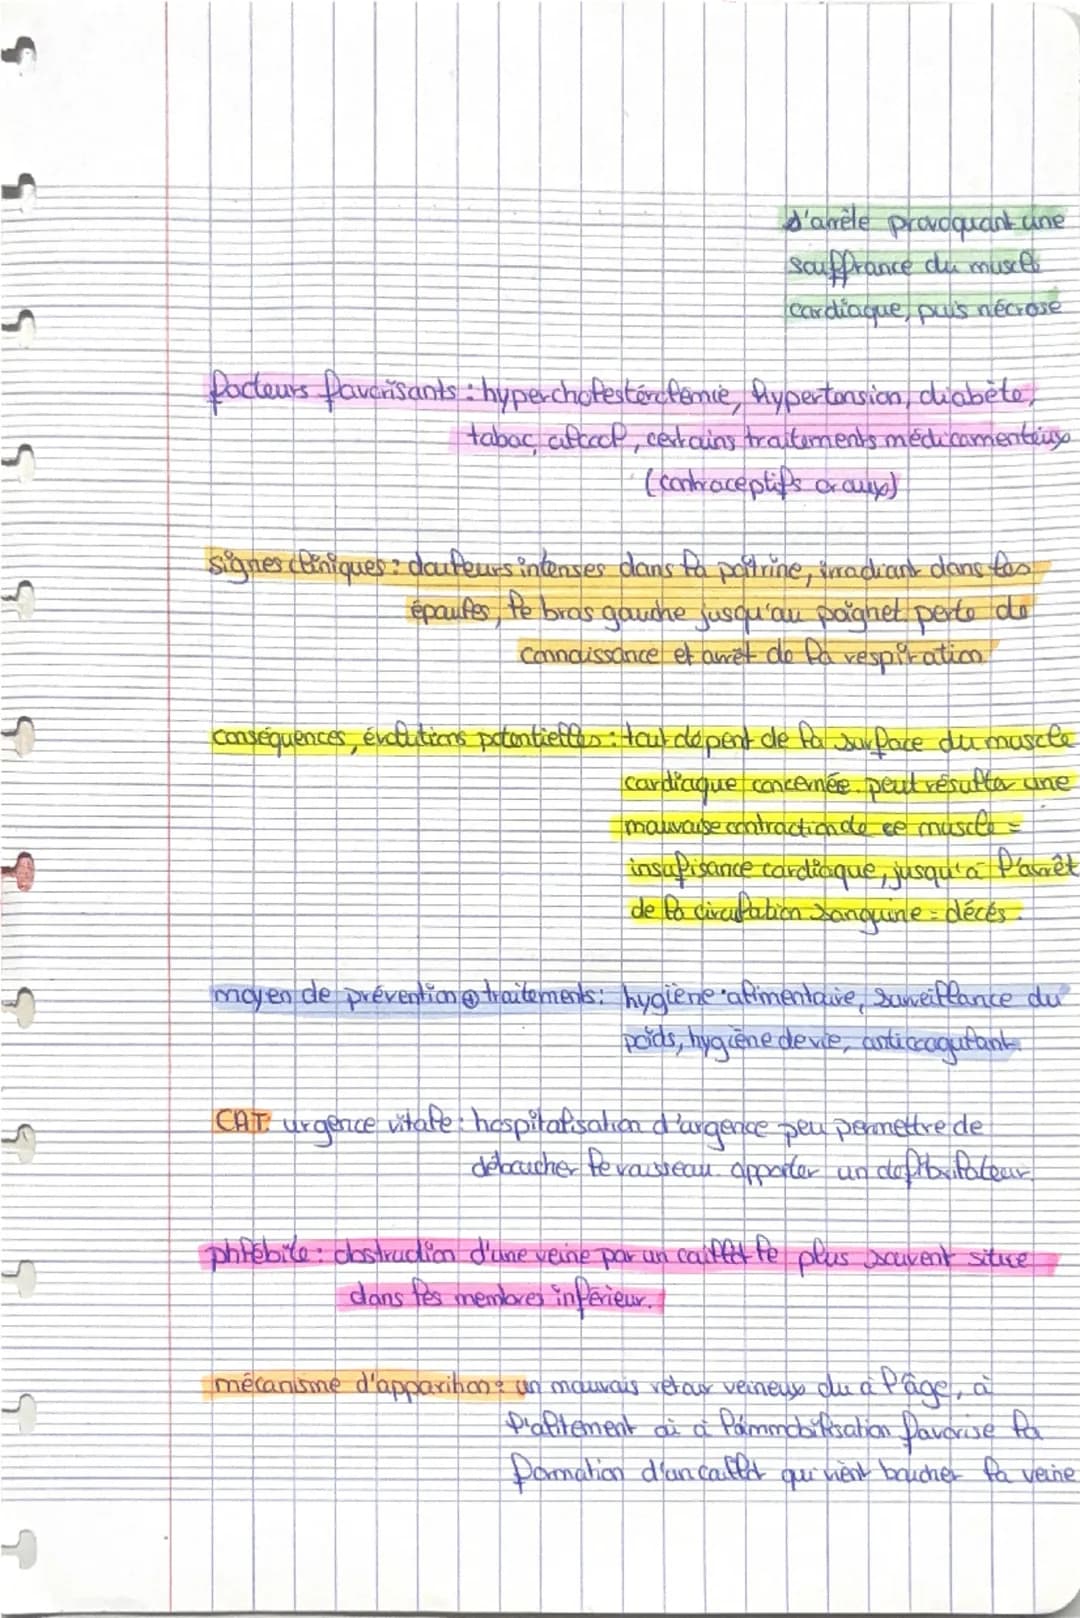 s'arrête provoquant une
souffrance du muscle
cardiaque, puis nécrose
facteurs favorisants : hypercholestérolémie, hypertension, diabète,
tabac, alcool, certains traitements médicamenteux
(contraceptifs oraux)
signes cliniques : douleurs intenses dans la poitrine, irradiant dans les
épaules, le bras gauche jusqu'au poignet. perte de
connaissance et arrêt de la respiration
conséquences, évolutions potentielles : tout dépent de la surface du muscle
cardiaque concernée. peut résulter une
mauvaise contraction de ce muscle =
insufisance cardiaque, jusqu'à l'arrêt
de la circulation sanguine = décés.
moyen de prévention ⊕ traitements : hygiène alimentaire, surveillance du
poids, hygiène de vie, anticoagulant.
CAT: urgence vitale : hospitalisation d'urgence peu permettre de
déboucher le vaisseau. apporter un defibrilateur.
phlébite : obstruction d'une veine par un caillot le plus souvent situé
dans les membres inférieur.
mécanisme d'apparition : un mauvais retour veineux du à l'âge, à
l'alitement où à l'immobilisation favorise la
formation d'un caillot qui vient boucher la veine